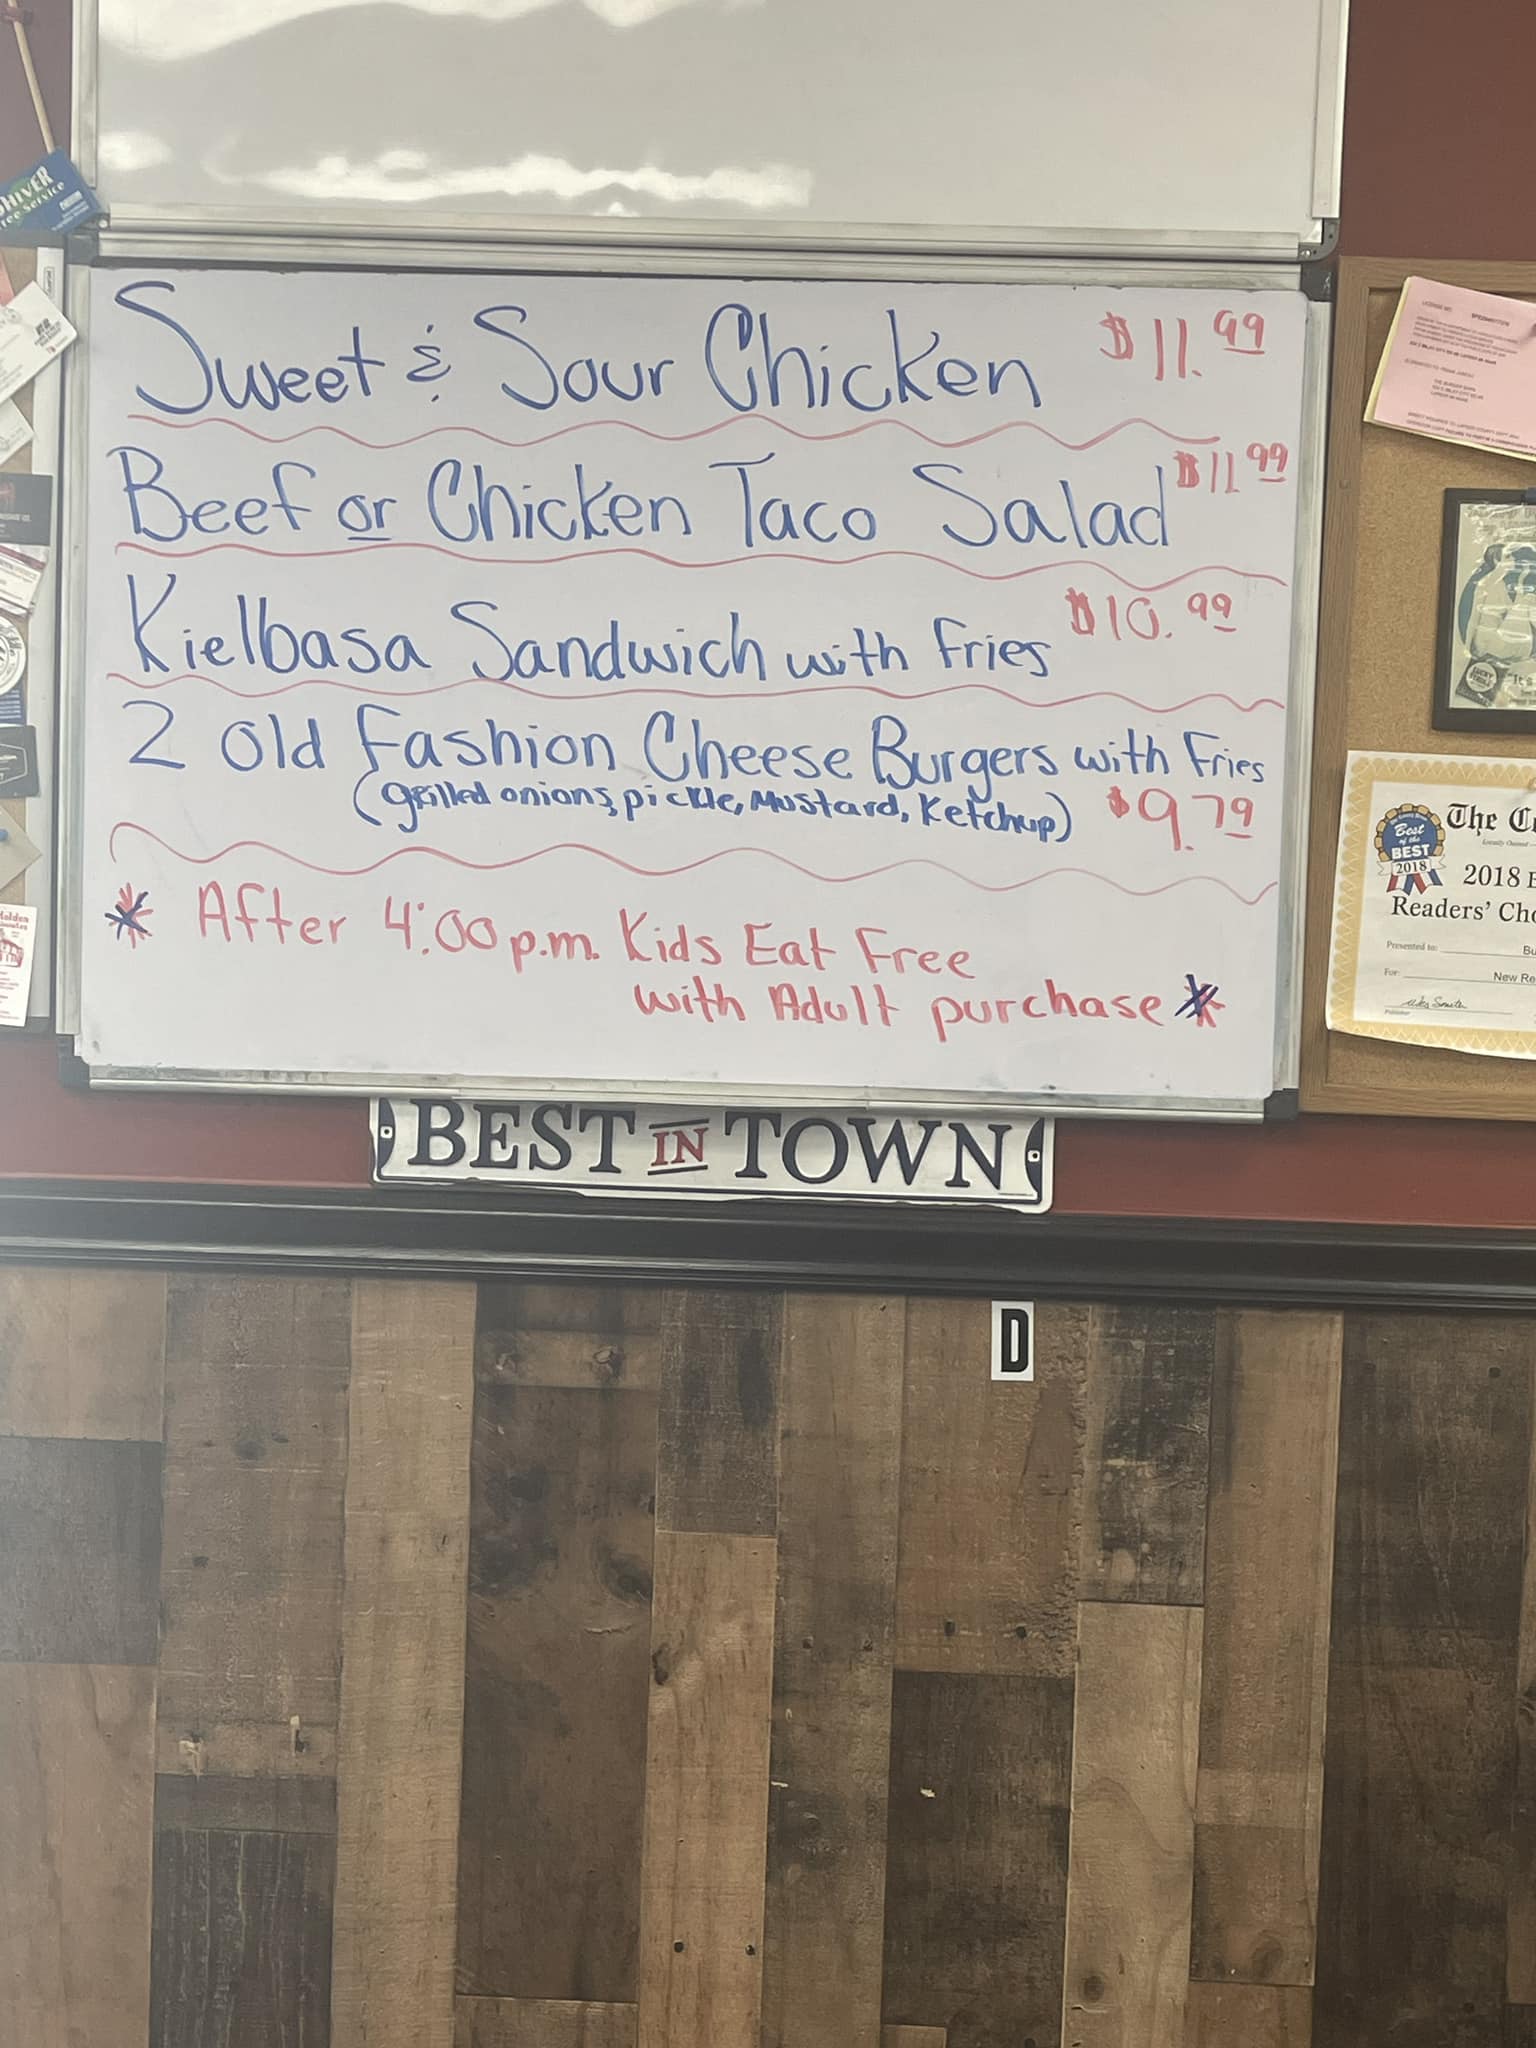 Sweet & Sour Chicken $11.99
Beef or Chicken Taco Salad $11.99
Kielbasa Sandwich with Fries $10.99
2 Old Fashion Cheese Burgers with Fries
(grilled onions, pickle, Mustard, Ketchup) $9.79
* After 4:00 p.m. Kids Eat Free
with Adult purchase *
BEST IN TOWN
D
The
Best
of the
BEST
2018
2018
Readers'
Presented to:
For:
New
Publisher
"It's